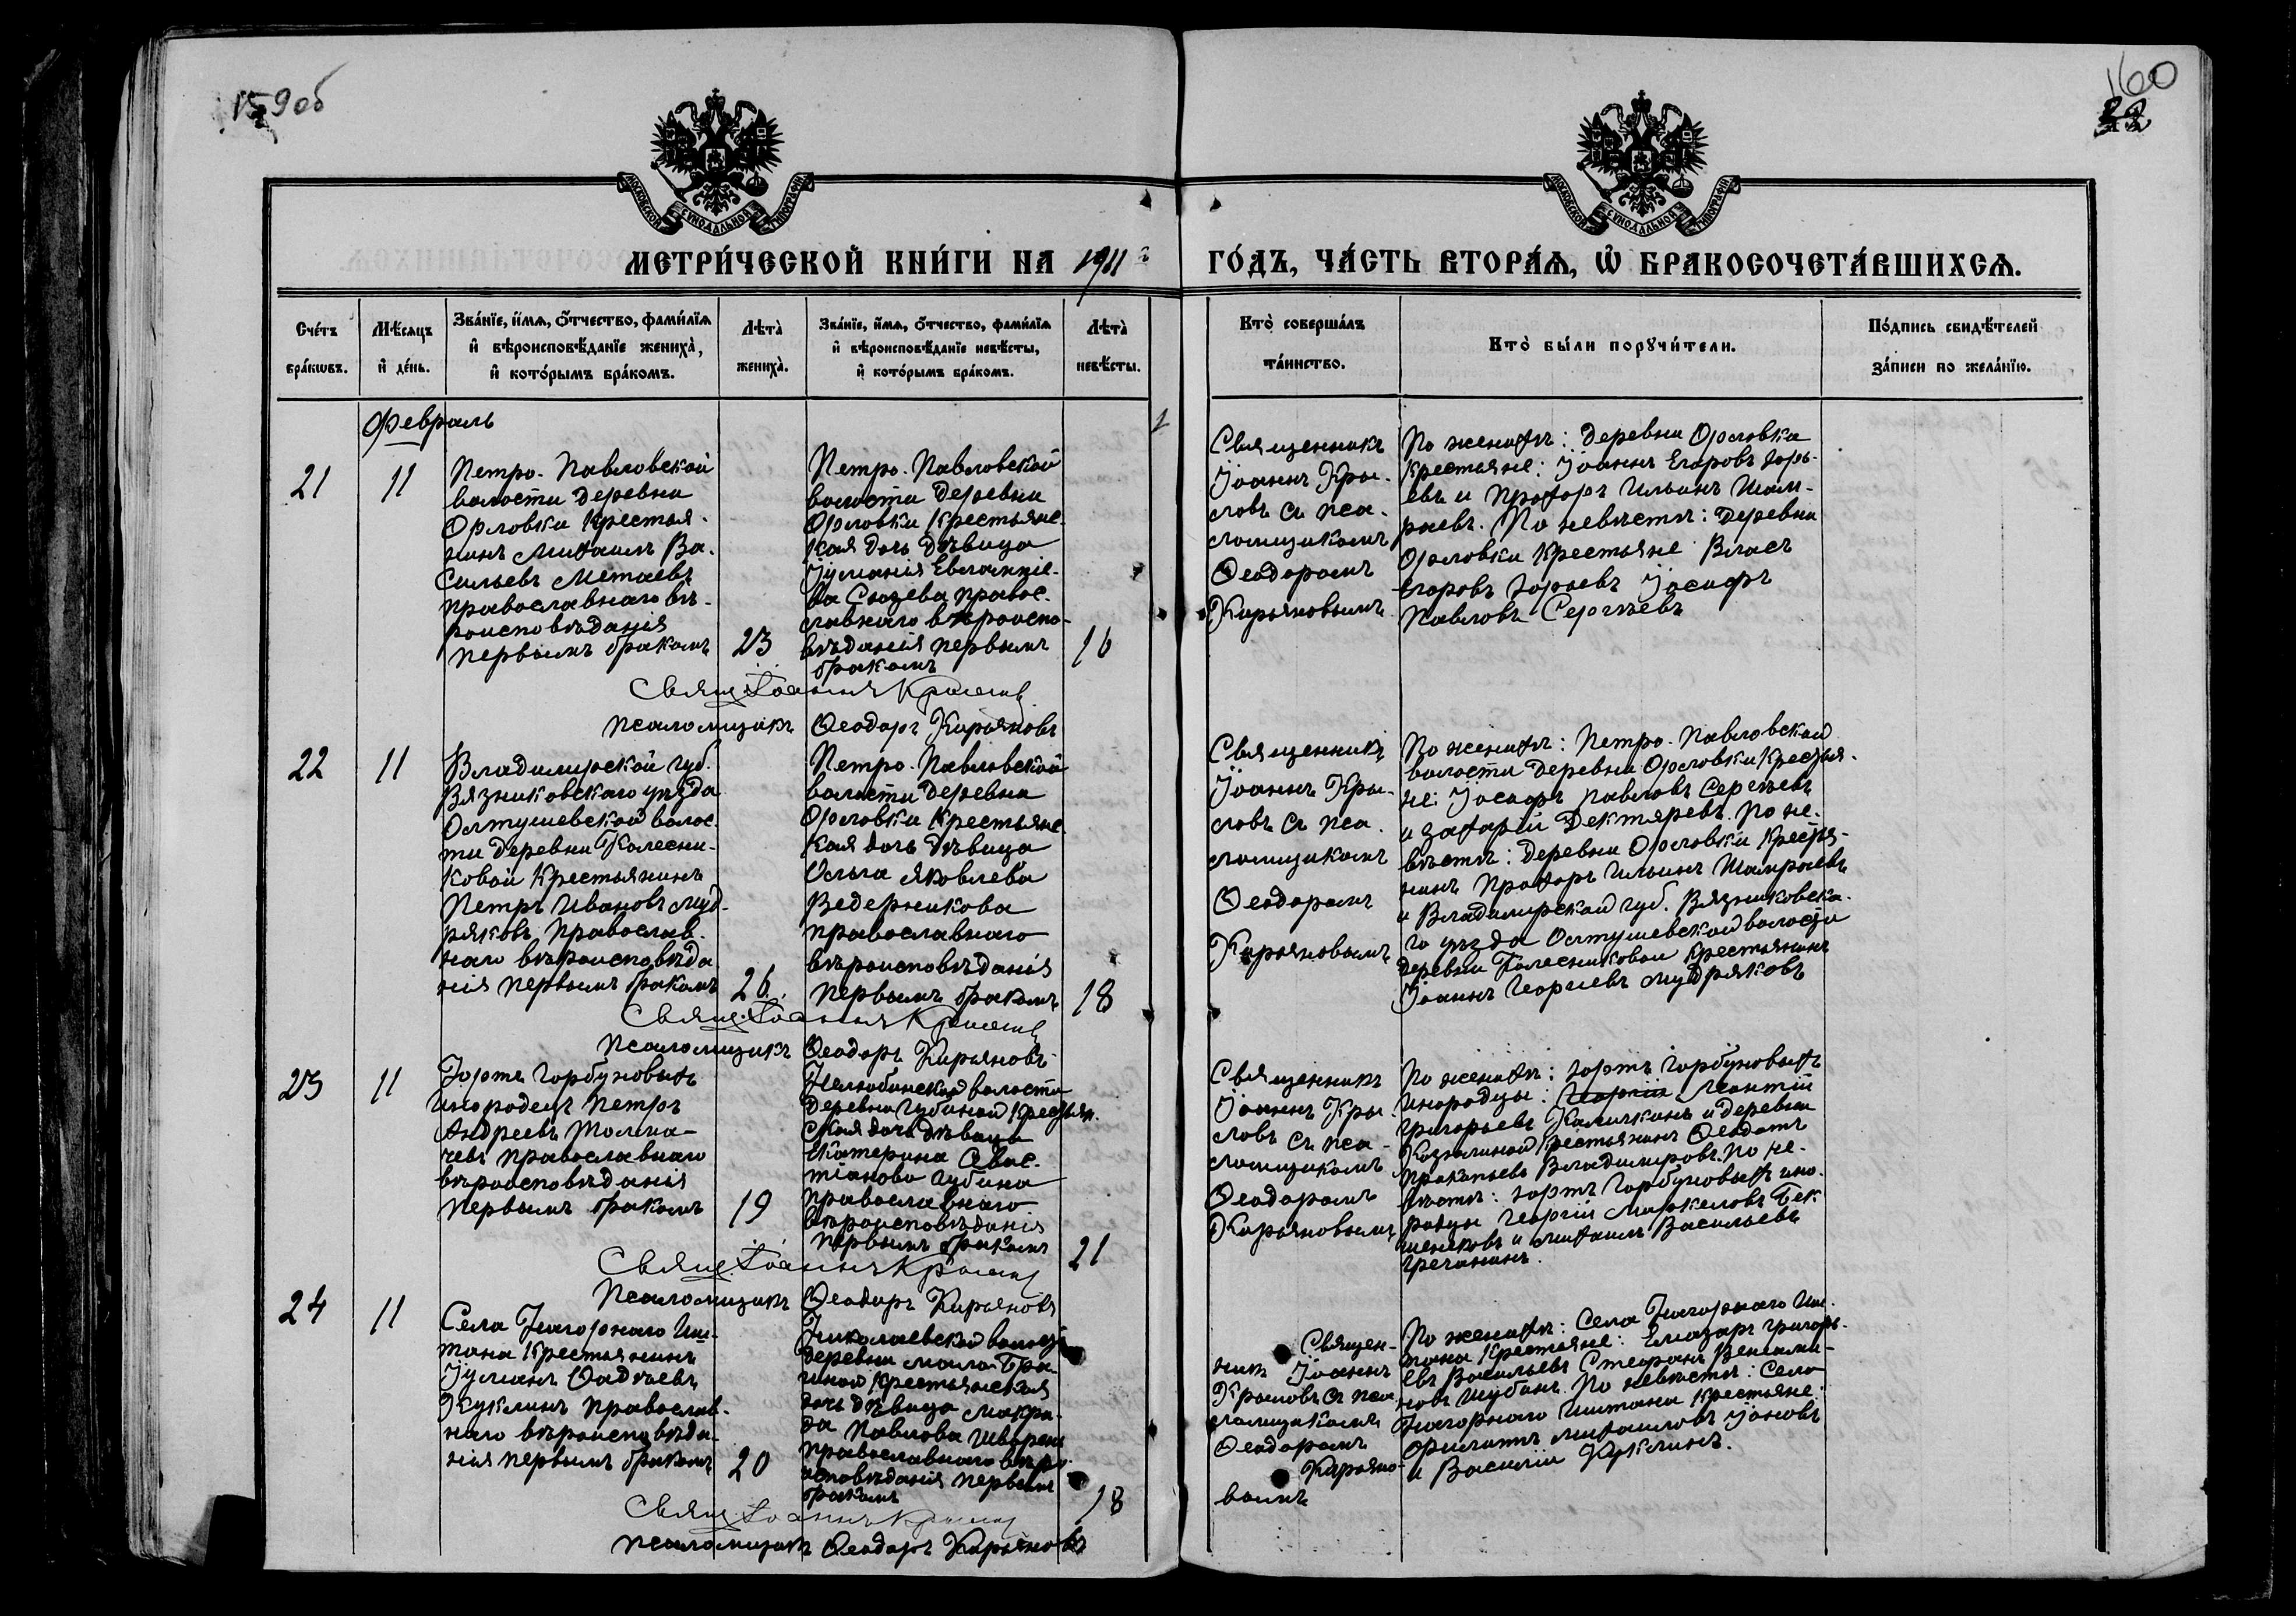 159 об
160
22
МОСКОВСКОЙ СѴНОДАЛЬНОЙ ТИПОГРАФІИ
МОСКОВСКОЙ СѴНОДАЛЬНОЙ ТИПОГРАФІИ
МЕТРИ́ЧЕСКОЙ КНИ́ГИ НА 1911 й
ГО́ДЪ, ЧА́СТЬ ВТОРА́Ѧ, Ѡ҆ БРАКОСОЧЕТА́ВШИХСѦ.
Сче́тъ
бра́кωвъ.
Мѣ́сяцъ
и҆ де́нь.
Зва́нїе, и҆́мѧ, ѻ҆́тчество, фами́лїѧ
и҆ вѣроисповѣ́данїе жениха̀,
и҆ кото́рымъ бра́комъ.
Лѣта̀
жениха̀.
Зва́нїе, и҆́мѧ, ѻ҆́тчество, фами́лїѧ
и҆ вѣроисповѣ́данїе невѣ́сты,
и҆ кото́рымъ бра́комъ.
Лѣта̀
невѣ́сты.
Кто̀ соверша́лъ
та́инство.
Кто̀ бы́ли порꙋчи́тели.
По́дпись свидѣ́телей
за́писи по жела́нїю.
Февраль
21
11
Петро-Павловской
волости деревни
Орловки крестья-
нинъ Михаилъ Ва-
сильевъ Метаевъ
православнаго вѣ-
роисповѣданія
первымъ бракомъ
23
Петро-Павловской
волости деревни
Орловки крестьянс-
кая дочь дѣвица
Іуліанія Евлампіе-
ва Сюзева правос-
лавнаго вѣроиспо-
вѣданія первымъ
бракомъ
16
Священникъ
Іоаннъ Кры-
ловъ съ пса-
ломщикомъ
Ѳеодоромъ
Кирьяновымъ
По женихѣ: деревни Орловки
крестьяне: Іоаннъ Егоровъ Юрь-
евъ и Прохоръ Ильинъ Шам-
раевъ. По невѣстѣ: деревни
Орловки крестьяне Власъ
Егоровъ Юрьевъ Іосафъ
Павловъ Сергѣевъ
Свящ. Іоаннъ Крыловъ
Псаломщикъ Ѳеодоръ Кирьяновъ
22
11
Владимірской губ.
Вязниковскаго уѣзда
Олтушевской волос-
ти деревни Колесни-
ковой крестьянинъ
Петръ Ивановъ Муд-
ряковъ православ-
наго вѣроисповѣда
нія первымъ бракомъ
26
Петро-Павловской
волости деревни
Орловки крестьянс-
кая дочь дѣвица
Ольга Яковлева
Ведерникова
православнаго
вѣроисповѣданія
первымъ бракомъ
18
Священникъ
Іоаннъ Кры-
ловъ съ пса-
ломщикомъ
Ѳеодоромъ
Кирьяновымъ
По женихѣ: Петро-Павловской
волости деревни Орловки крестья-
не: Іосафъ Павловъ Сергѣевъ
и Захарій Дектяревъ. По не-
вѣстѣ: деревни Орловки крестья-
нинъ Прохоръ Ильинъ Шамраевъ
и Владимірской губ. Вязниковска-
го уѣзда Олтушевской волости
деревни Колесниковой крестьянинъ
Іоаннъ Георгіевъ Мудряковъ
Свящ. Іоаннъ Крыловъ
Псаломщикъ Ѳеодоръ Кирьяновъ
23
11
Юртъ Горбуновыхъ
инородецъ Петръ
Андреевъ Толма-
чевъ православнаго
вѣроисповѣданія
первымъ бракомъ
19
Нелюбинской волости
деревни Губиной крестьян-
ская дочь дѣвица
Екатерина Савас-
тіанова Губина
православнаго
вѣроисповѣданія
первымъ бракомъ
21
Священникъ
Іоаннъ Кры-
ловъ съ пса-
ломщикомъ
Ѳеодоромъ
Кирьяновымъ
По женихѣ: юртъ Горбуновыхъ
инородцы: Георгій Леонтій
Григорьевъ Калычкинъ и деревни
Козюлиной крестьянинъ Ѳеодотъ
Прокопьевъ Владиміровъ. По не-
вѣстѣ: юртъ Горбуновыхъ ино-
родцы Георгій Маркеловъ Бек
шенковъ и Михаилъ Васильевъ
Гречанинъ.
Свящ. Іоаннъ Крыловъ
Псаломщикъ Ѳеодоръ Кирьяновъ
24
11
Села Нагорнаго Иш-
тана крестьянинъ
Іуліанъ Ѳаддеевъ
Куклинъ православ-
наго вѣроисповѣда-
нія первымъ бракомъ
20
Николаевской волости
деревни Мало-Бра-
гиной крестьянская
дочь дѣвица Макри-
да Павлова
православнаго вѣро
исповѣданія первымъ
бракомъ
18
Священ-
никъ Іоаннъ
Крыловъ съ пса
ломщикомъ
Ѳеодоромъ
Кирьяно-
вымъ
По женихѣ: Села Нагорнаго Иш-
тана крестьяне: Елиазаръ Григорь-
евъ Васильевъ Стефанъ Веніами-
новъ Шубинъ. По невѣстѣ: Села
Нагорнаго Иштана крестьяне:
Филатъ Михаиловъ Іоновъ
и Василій Куклинъ.
Свящ. Іоаннъ Крыловъ
Псаломщикъ Ѳеодоръ Кирьяновъ